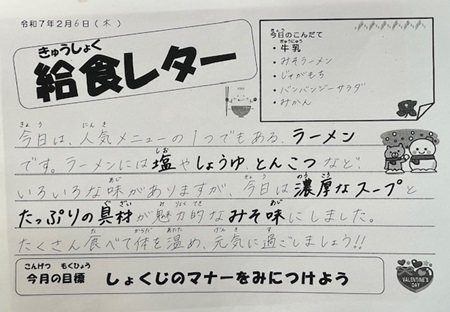 令和7年2月6日(木)
きゅうしょく
給食レター
きょう
今日のこんだて
ぎゅうにゅう
・牛乳
・みそラーメン
・じゃがもち
・バンバンジーサラダ
・みかん
きょう にんき
今日は、人気メニューの1つでもある、ラーメン
しお
です。ラーメンには塩やしょうゆ、とんこつなど、
あじ きょう のうこう
いろいろな味がありますが、今日は濃厚なスープと
ぐざい みりょくてき あじ
たっぷりの具材が魅力的なみそ味にしました。
た からだ あたた げんき す
たくさん食べて体を温め、元気に過ごしましょう!!
こんげつ もくひょう
今月の目標 しょくじのマナーをみにつけよう
VALENTINE'S
DAY